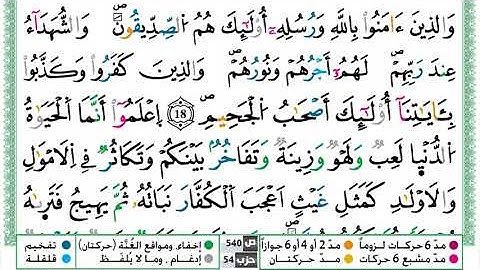 وَالذِينَ ءَامَنُوا۟ بِاللَّهِ وَرُسُلِهِۦٓ أُوْلَٰٓئِكَ هُمُ اُ۬لصِّدِّيقُونَۖ وَالشُّهَدَآءُ
عِندَ رَبِّهِمْۖ لَهُمُۥٓ أَجْرُهُمْ وَنُورُهُمْۖ وَالذِينَ كَفَرُوا۟ وَكَذَّبُوا۟
بِـَٔايَٰتِنَآ أُوْلَٰٓئِكَ أَصْحَٰبُ اُ۬لْجَحِيمِۖ 18 اِ۪عْلَمُوٓا۟ أَنَّمَا اَ۬لْحَيَوٰةُ
اُ۬لدُّنْي۪ا لَعِبٞ وَلَهْوٞ وَزِينَةٞ وَتَفَاخُرُۢ بَيْنَكُمْ وَتَكَاثُرٞ فِے اِ۬لَامْوَٰلِ
وَالَاوْلَٰدِ كَمَثَلِ غَيْثٍ اَعْجَبَ اَ۬لْكُفَّارَ نَبَاتُهُۥ ثُمَّ يَهِيجُ فَتَر۪يٰهُ
مدّ 6 حركات لزوماً مدّ 2 أو 4 أو 6 جوازاً ص 540 إخفاء، ومواقع الغُنَّة (حركتان) تفخيم
مدّ مشبع 6 حركات مدّ حركتان حزب 54 إدغام، وما لا يُلفَظ قلقلة